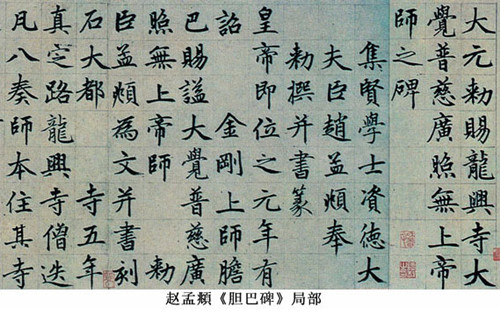 大元勅賜龍興寺大
覺普慈廣照無上帝
師之碑
集賢學士資德大
夫臣趙孟頫奉
勅撰并書篆
皇帝即位之元年有
詔 金剛上師膽
巴賜謚大覺普慈廣
照無上帝師 勅
臣孟頫為文并書刻
石大都 寺五年
真定路龍興寺僧迭
凡八奏師本住其寺
赵孟頫《胆巴碑》局部